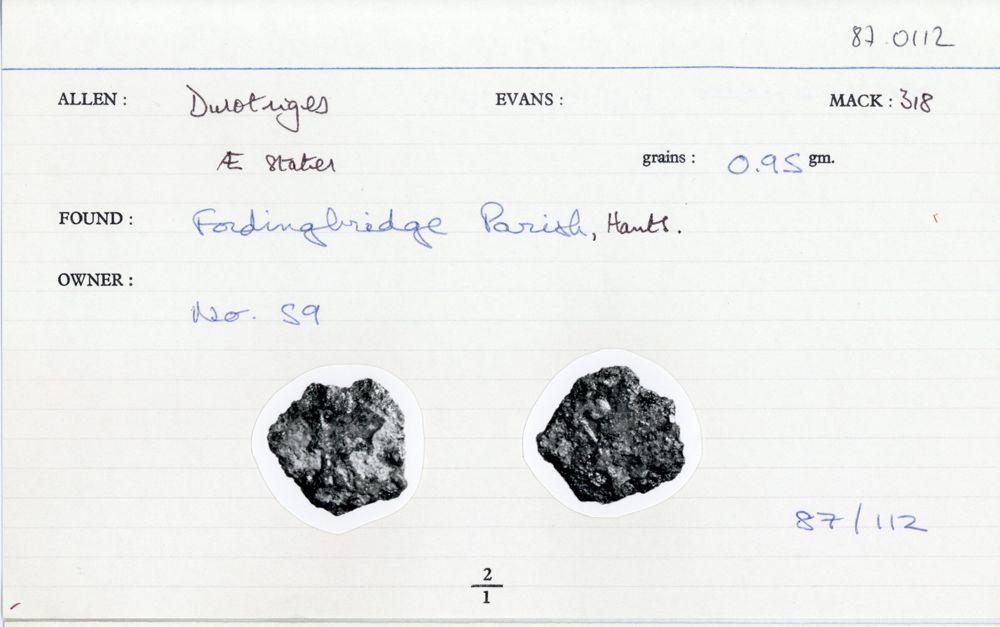 87.0112
ALLEN : Durotriges EVANS : MACK : 318
Æ Stater grains : 0.95 gm.
FOUND : Fordingbridge Parish, Hants.
OWNER :
No. 59
87/112
2
1